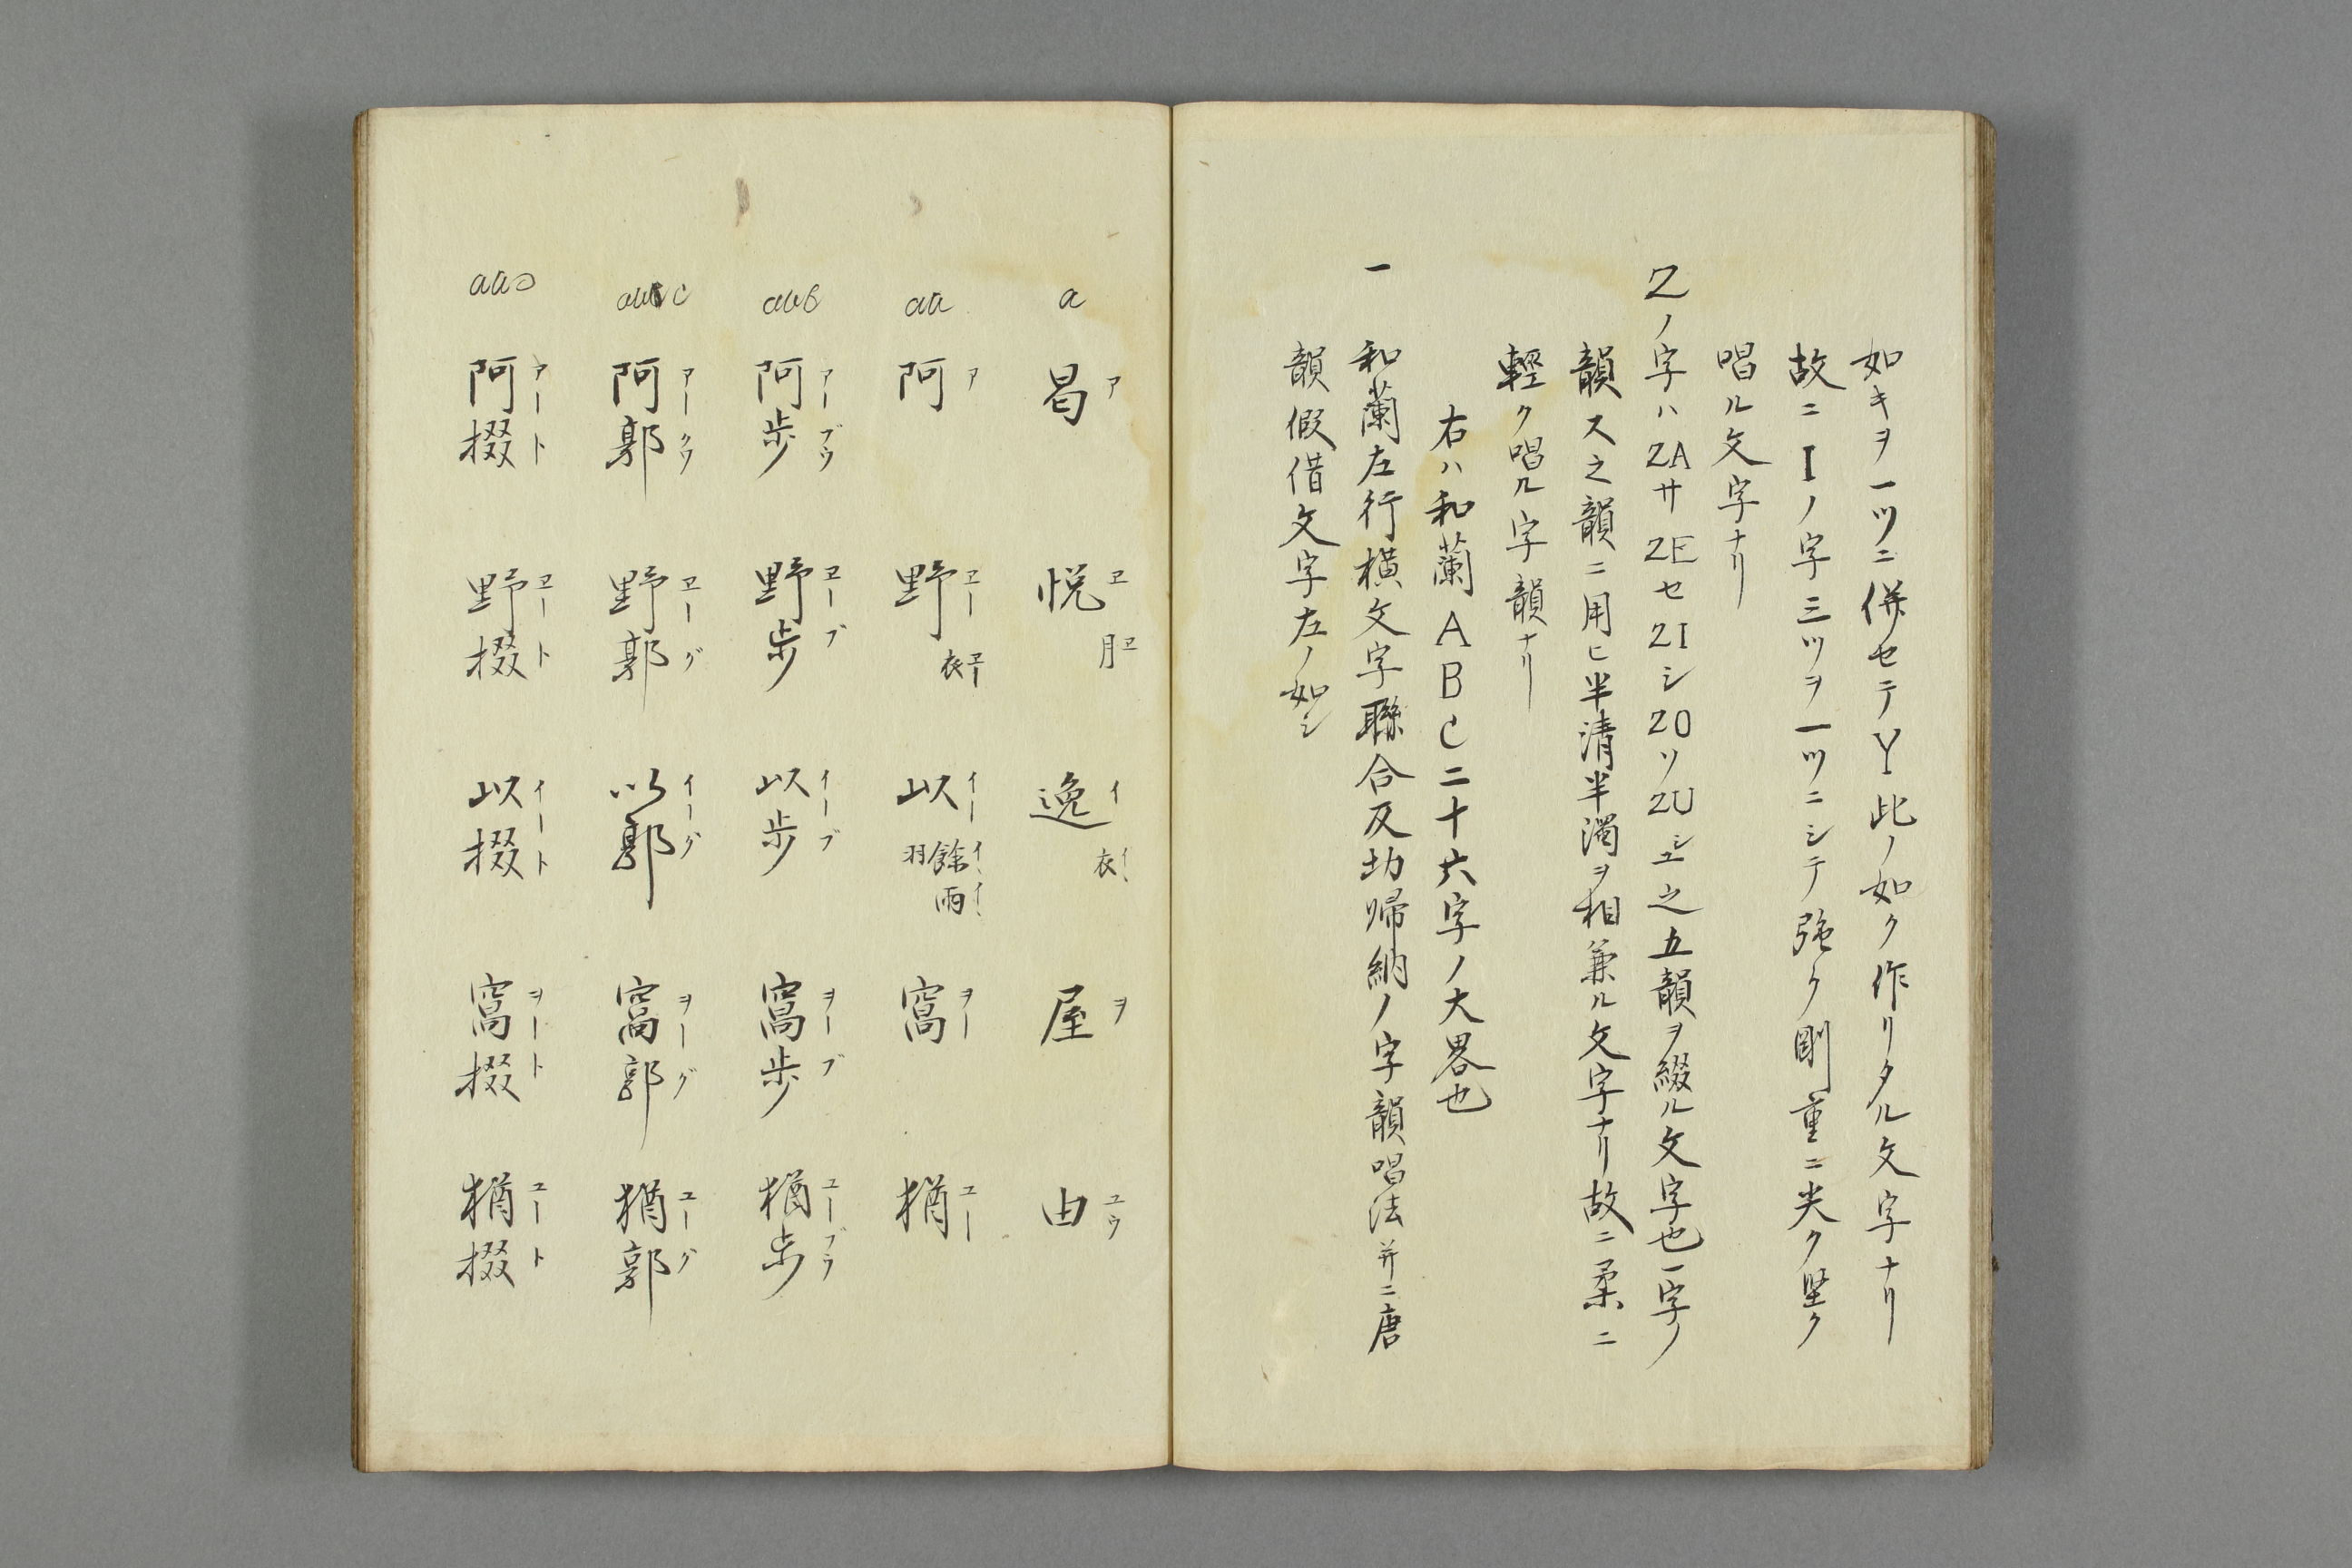 如キヲ一ツニ併セテY此ノ如ク作リタル文字ナリ
故ニIノ字三ツヲ一ツニシテ強ク剛重ニ尖ク堅ク
唱ル文字ナリ
Zノ字ハZAサZEセZIシZOソZUシユ之五韻ヲ綴ル文字也一字ノ
韻ス之韻ニ用ヒ半清半濁ヲ相兼ル文字ナリ故ニ柔ニ
軽ク唱ル字韻ナリ
右ハ和蘭ABC二十六字ノ大畧也
一 和蘭左行横文字聯合反切帰納ノ字韻唱法并ニ唐
韻假借文字左ノ如シ
a 曷ア 悦ヱ 月ヱ 逸イ 衣イ 屋ヲ 由ユウ
aa 阿ア 野ヱー 衣ヱー 以イー 餘イー 羽雨イー 窩ヲー 猶ユー
aab 阿歩アーブウ 野歩ヱーブ 以歩イーブ 窩歩ヲーブ 猶歩ユーブウ
aac 阿郭アークウ 野郭ヱーグ 以郭イーグ 窩郭ヲーグ 猶郭ユーグ
aaD 阿掇アート 野掇ヱート 以掇イート 窩掇ヲート 猶掇ユート